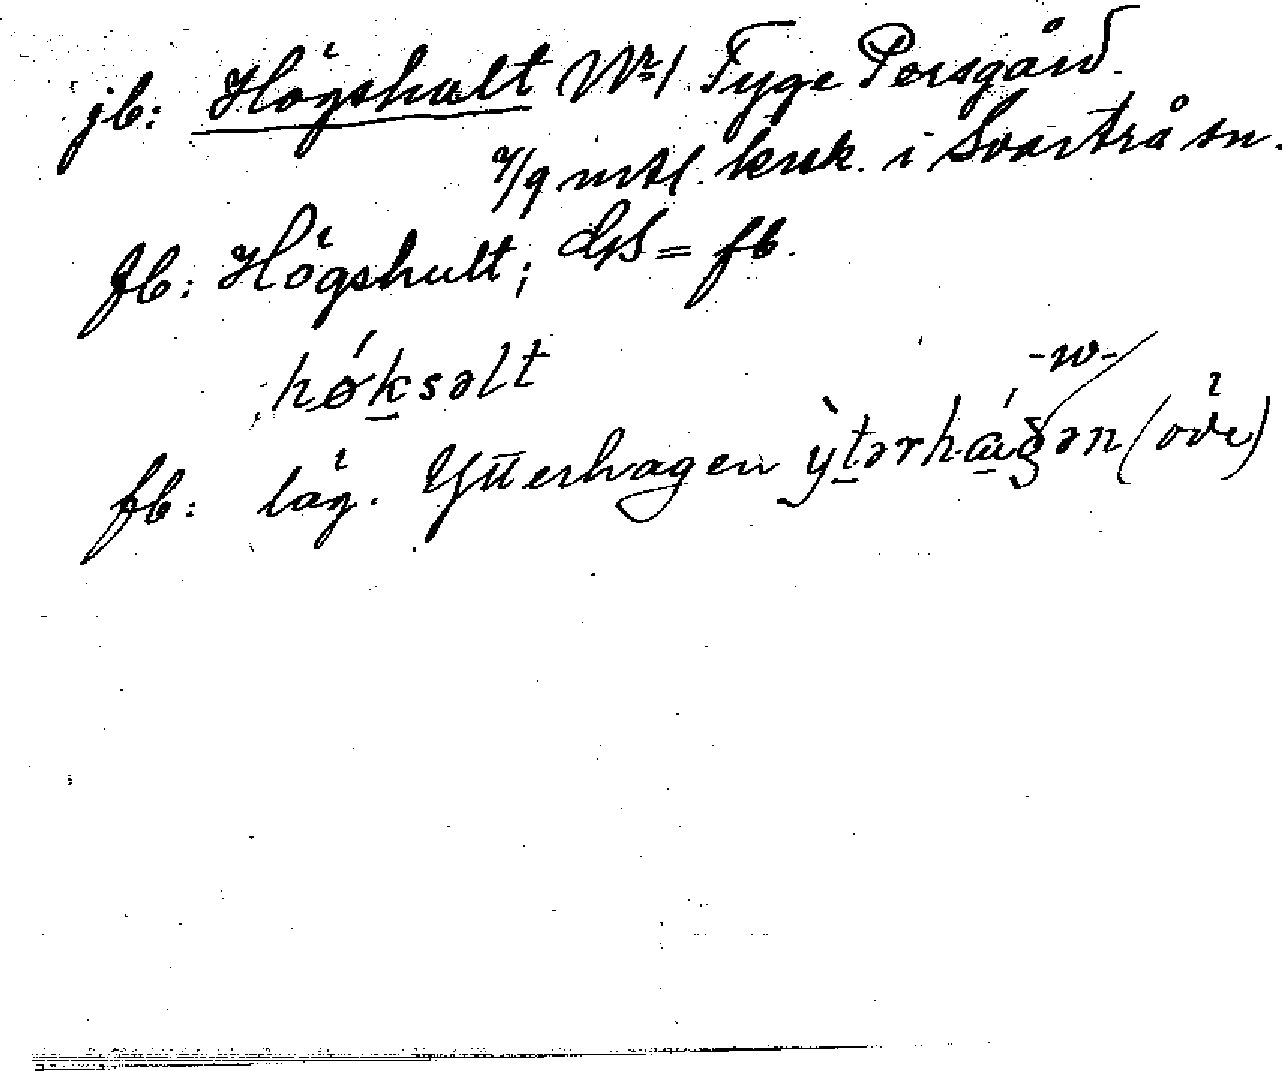 jb: Högshalt Nr 1 Tyge Persgård
mtl. krsk. i Svartrå sn.
fb: Högshult; GS = fb.
hǿk̠səlt
-w-
fb: läg. Ytterhagen ỳt̠ərhágən (öde)